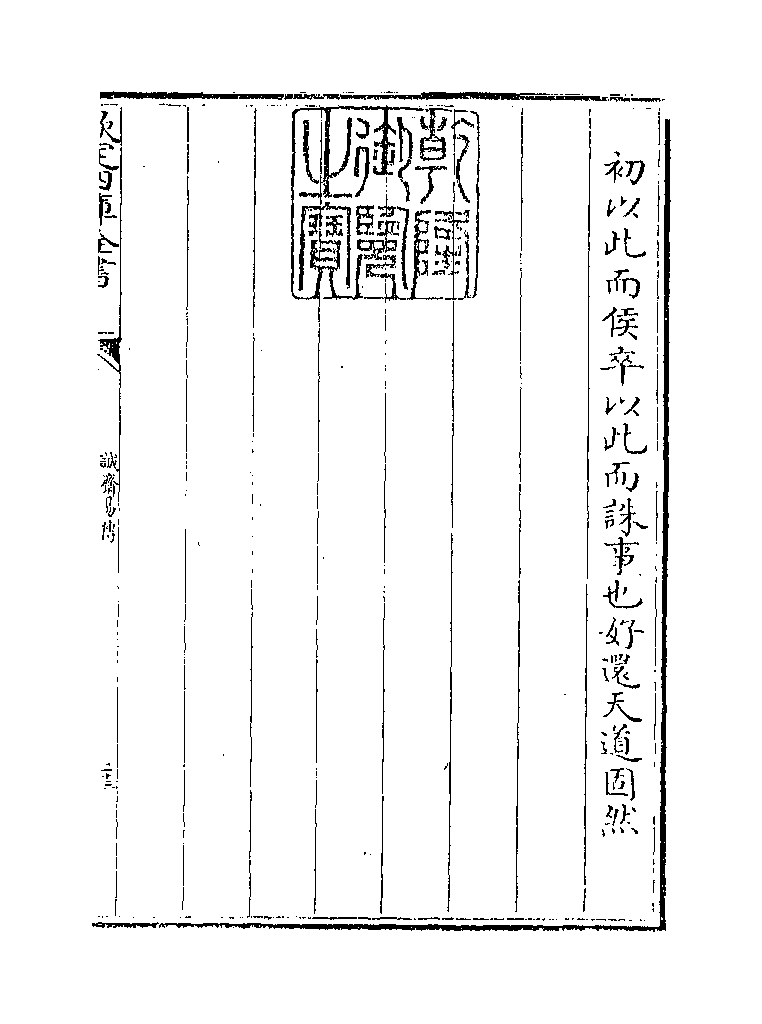 初以此而侯卒以此而誅事也好還天道固然
乾隆
御覽
之寶
欽定四庫全書
誠齋易傳